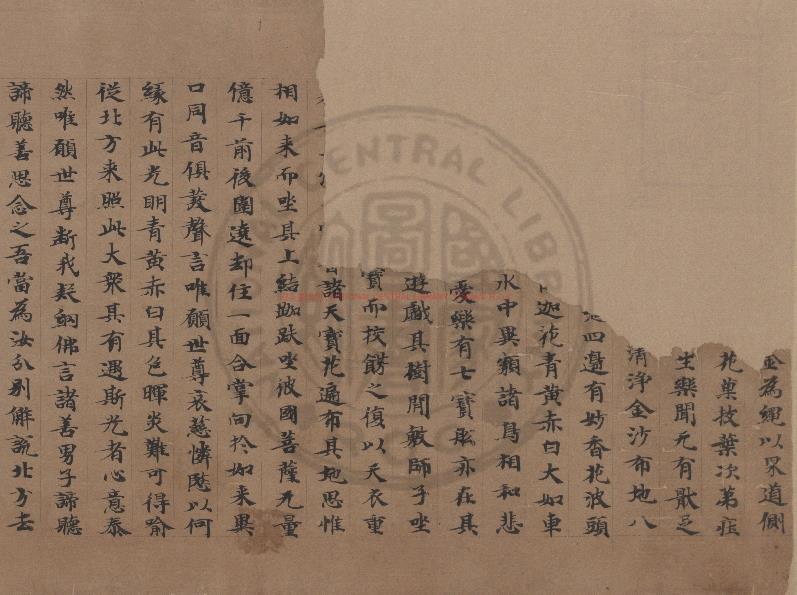 金為繩以界道側
花菓枝葉次弟莊
生樂聞无有猒足
清淨金沙布地八
四邊有妙香花波頭
迦花青黃赤白大如車
水中異類諸鳥相和悲
愛樂有七寶船亦在其
遊戲其樹間敷師子坐
寶而挍餝之復以天衣重
諸天寶花遍布其地思惟
相如来而坐其上結跏趺坐彼國菩薩无量
億千前後圍遶却住一面合掌向扵如来異
口同音俱發聲言唯願世尊哀慈憐愍以何
緣有此光明青黃赤白其色暉炎難可得喻
從北方来照此大衆其有遇斯光者心意泰
然唯願世尊斷我疑網佛言諸善男子諦聽
諦聽善思念之吾當為汝分別解說北方去
CENTRAL LIBR
圖